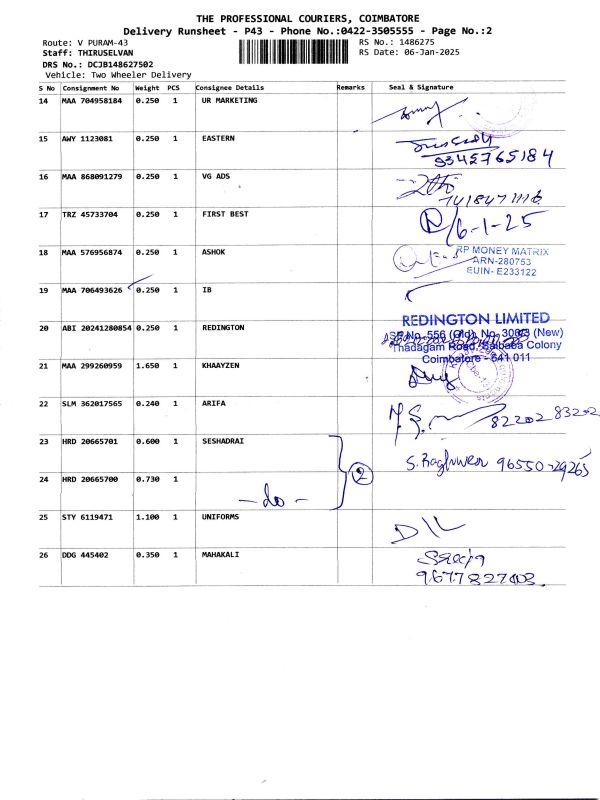 THE PROFESSIONAL COURIERS, COIMBATORE
Delivery Runsheet - P43 - Phone No.:0422-3505555 - Page No.:2
Route: V PURAM-43 RS No.: 1486275
Staff: THIRUSELVAN RS Date: 06-Jan-2025
DRS No.: DCJB148627502
Vehicle: Two Wheeler Delivery
S No Consignment No Weight PCS Consignee Details Remarks Seal & Signature
14 MAA 704958184 0.250 1 UR MARKETING
15 AWY 1123081 0.250 1 EASTERN
9345765184
16 MAA 868091279 0.250 1 VG ADS
17 TRZ 45733704 0.250 1 FIRST BEST
6-1-25
18 MAA 576956874 0.250 1 ASHOK
RP MONEY MATRIX
ARN-280753
EUIN- E233122
19 MAA 706493626 0.250 1 IB
20 ABI 20241280854 0.250 1 REDINGTON
REDINGTON LIMITED
(Old), (New)
Thadagam Road, Saibaba Colony
Coimbatore - 641 011
21 MAA 299260959 1.650 1 KHAAYZEN
22 SLM 362017565 0.240 1 ARIFA
82202 83202
23 HRD 20665701 0.600 1 SESHADRAI
2
96550-29265
24 HRD 20665700 0.730 1
- do -
25 STY 6119471 1.100 1 UNIFORMS
26 DDG 445402 0.350 1 MAHAKALI